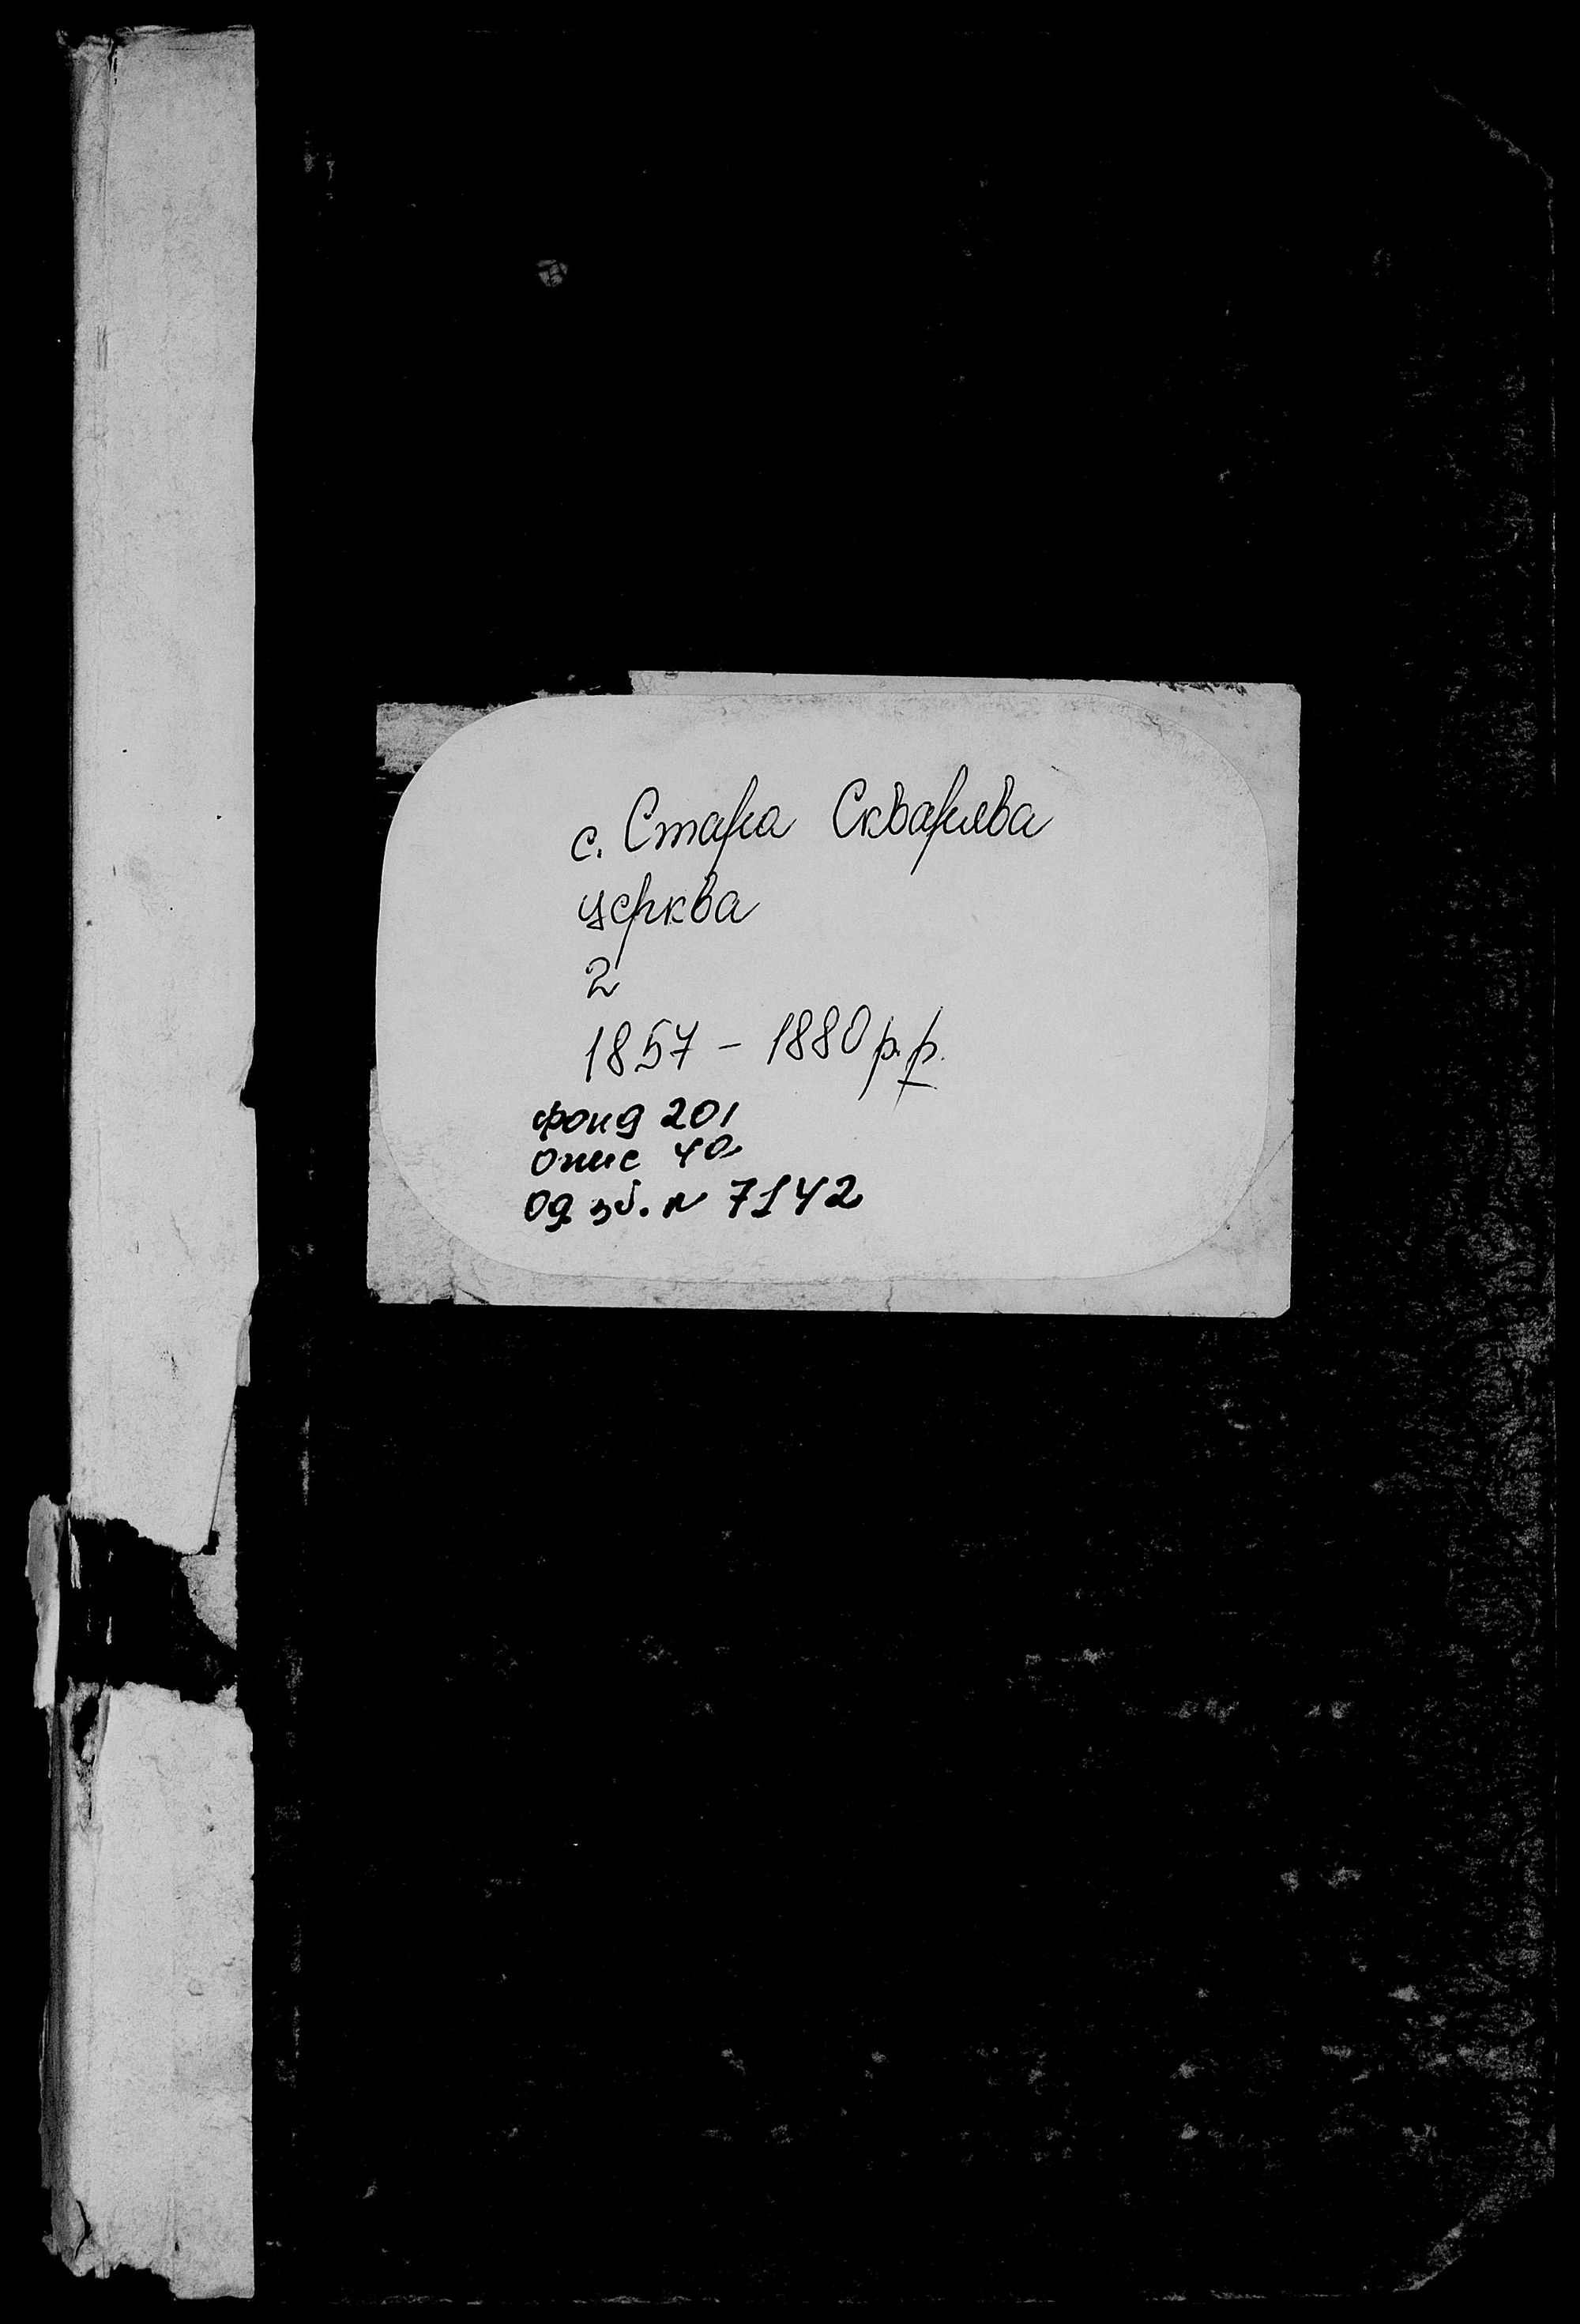 с. Стара Скварява
церква
2
1857 - 1880 р.р.
фонд 201
опис 4а
од. зб. № 7142